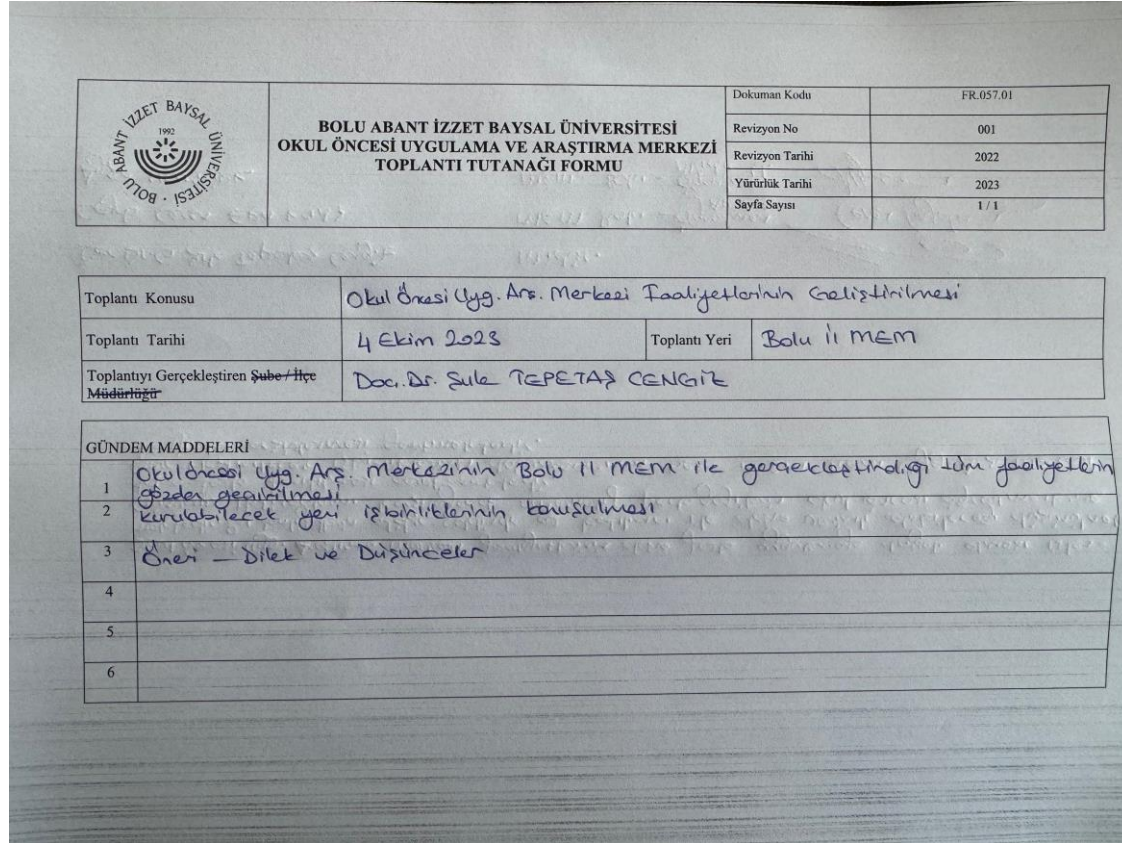 BOLU ABANT İZZET BAYSAL ÜNİVERSİTESİ
1992
BOLU ABANT İZZET BAYSAL ÜNİVERSİTESİ
OKUL ÖNCESİ UYGULAMA VE ARAŞTIRMA MERKEZİ
TOPLANTI TUTANAĞI FORMU
Dokuman Kodu FR.057.01
Revizyon No 001
Revizyon Tarihi 2022
Yürürlük Tarihi 2023
Sayfa Sayısı 1 / 1
Toplantı Konusu Okul Öncesi Uyg. Arş. Merkezi Faaliyetlerinin Geliştirilmesi
Toplantı Tarihi 4 Ekim 2023 Toplantı Yeri Bolu İl MEM
Toplantıyı Gerçekleştiren Şube / İlçe
Müdürlüğü Doç. Dr. Şule TEPETAŞ CENGİZ
GÜNDEM MADDELERİ
1 Okulöncesi Uyg. Arş. Merkezinin Bolu İl MEM ile gerçekleştirdiği tüm faaliyetlerin
gözden geçirilmesi
2 Kurulabilecek yeni işbirliklerinin konuşulması
3 Öneri – Dilek ve Düşünceler
4
5
6